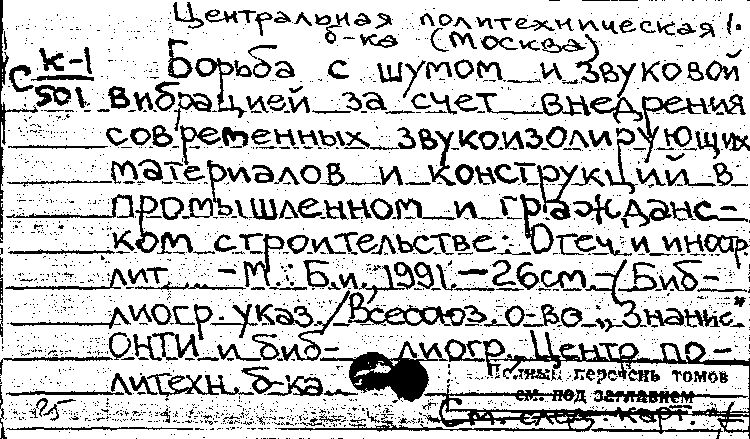 Центральная политехническая 1.
б-ка (Москва)
С К-1
501
Борьба с шумом и звуковой
вибрацией за счет внедрения
современных звукоизолирующих
материалов и конструкций в
промышленном и гражданс-
ком строительстве: Отеч. и иностр.
лит. ... – М.: Б.и., 1991. – 26см. – (Биб-
лиогр. указ. / Всесоюз. о-во „Знание"
ОНТИ и биб- лиогр., Центр. по-
литехн. б-ка..
Полный перечень томов
см. под заглавием
См. след. карт.
25